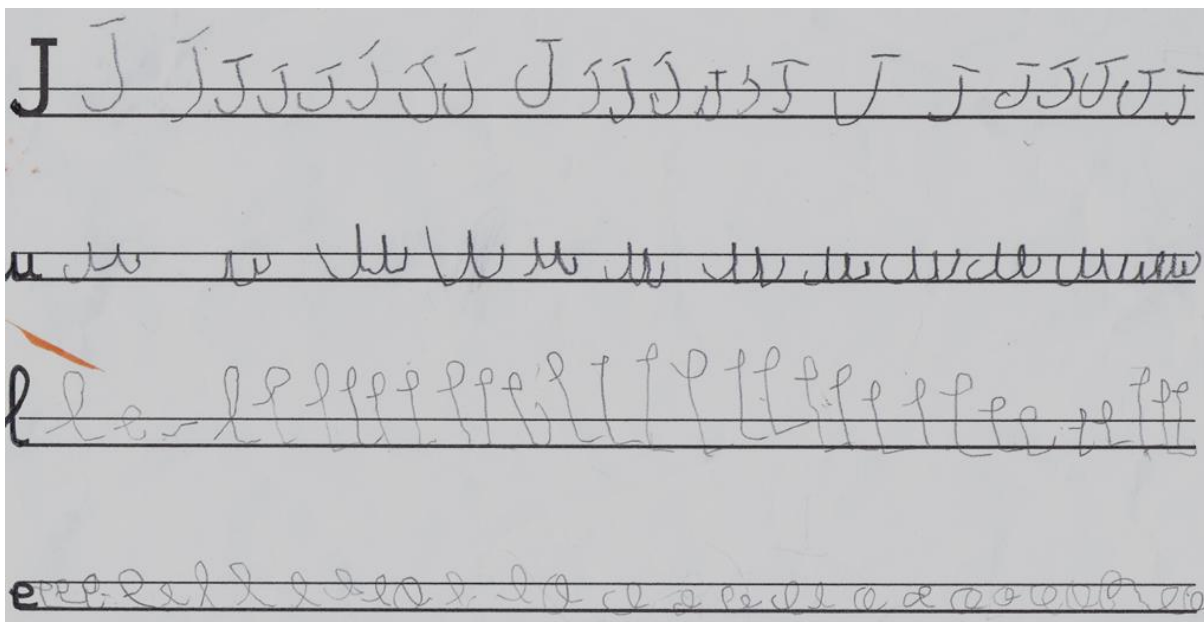 J J J J J J J J J J J J J J J J J J J J J J J
u u u u u u u u u u u u u
l l e l l l l l l l l l l l l l l l l l l l l l l l l l l l
e e e e e e l l e e e e e e l e e e e e e e e e e e e e e e